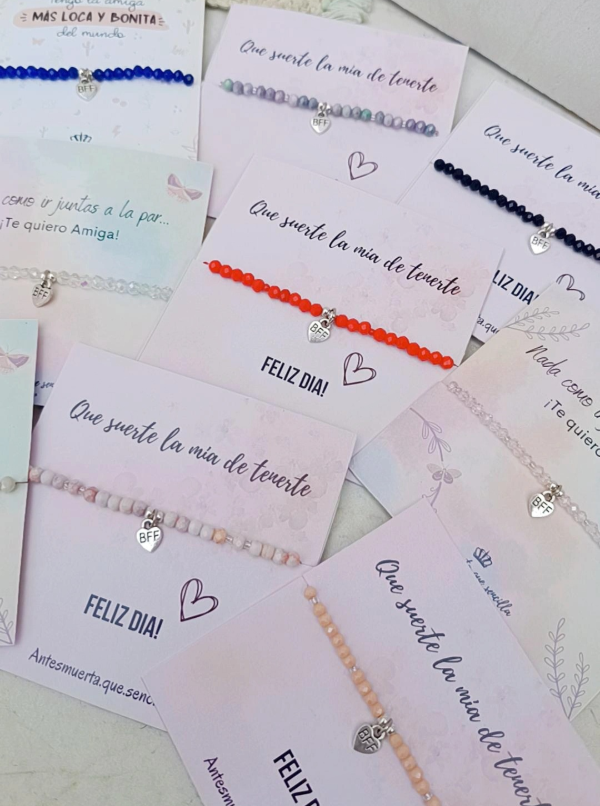 Tengo la amiga
MÁS LOCA Y BONITA
del mundo
BFF
Que suerte la mía de tenerte
BFF
Que suerte la mía
BFF
FELIZ DIA!
como ir juntas a la par...
¡Te quiero Amiga!
BFF
Que suerte la mía de tenerte
BFF
FELIZ DIA!
Nada como
¡Te quiero
BFF
que sencilla
Que suerte la mía de tenerte
BFF
FELIZ DIA!
Antesmuerta.que.senc
Que suerte la mía de tenerte
BFF
FELIZ D
Antesmuerta